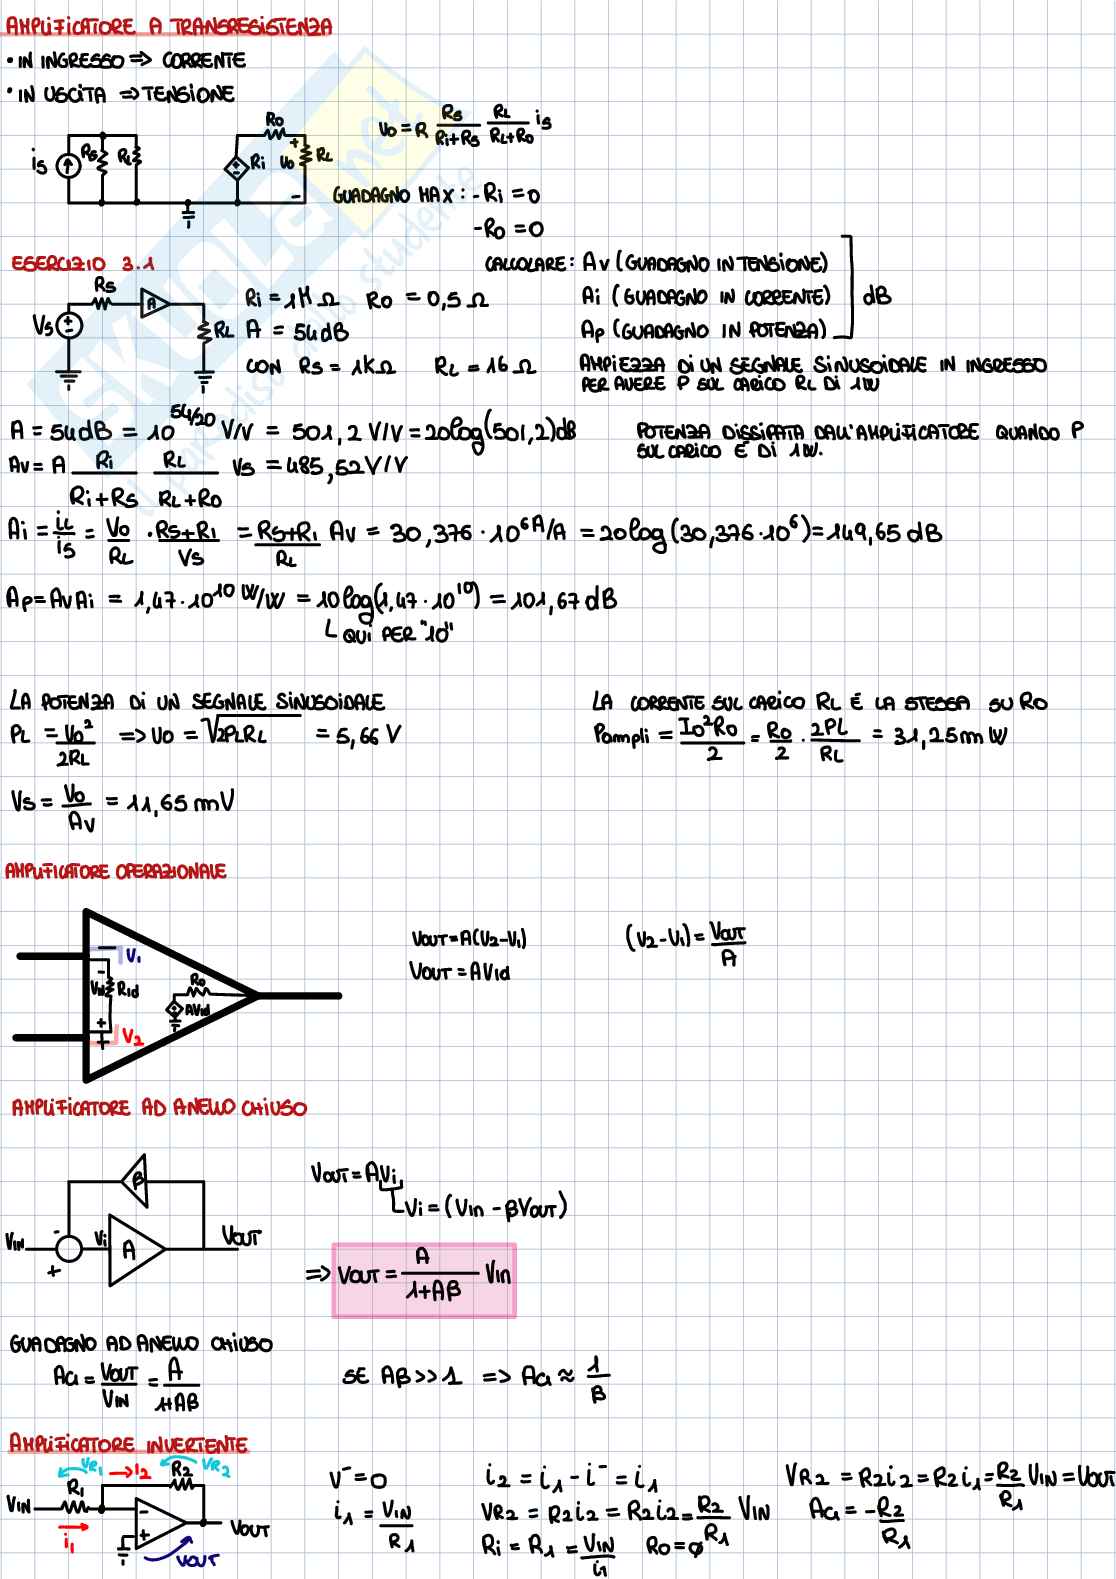 AMPLIFICATORE A TRANSRESISTENZA
• IN INGRESSO => CORRENTE
• IN USCITA => TENSIONE
is Rs Ri Ri Ro + Vo - RL
Vo = R Rs/(Ri+Rs) RL/(RL+Ro) is
GUADAGNO MAX: - Ri = 0
- Ro = 0
ESERCIZIO 3.1
Vs Rs A RL
Ri = 1M Ω Ro = 0,5 Ω
A = 54dB
CON Rs = 1KΩ RL = 16 Ω
CALCOLARE: Av (GUADAGNO IN TENSIONE)
Ai (GUADAGNO IN CORRENTE) dB
Ap (GUADAGNO IN POTENZA)
AMPIEZZA DI UN SEGNALE SINUSOIDALE IN INGRESSO
PER AVERE P SUL CARICO RL DI 1W
POTENZA DISSIPATA DALL'AMPLIFICATORE QUANDO P
SUL CARICO È DI 1W.
A = 54dB = 10^54/20 V/V = 501,2 V/V = 20log(501,2)dB
Av = A Ri/(Ri+Rs) RL/(RL+Ro) Vs = 485,52 V/V
Ai = iL/is = Vo/RL · (Rs+Ri)/Vs = (Rs+Ri)/RL Av = 30,376 · 10^6 A/A = 20log(30,376·10^6) = 149,65 dB
Ap = AvAi = 1,47·10^10 W/W = 10log(1,47·10^10) = 101,67 dB
QUI PER "10"
LA POTENZA DI UN SEGNALE SINUSOIDALE
PL = Vo²/2RL => Vo = √2PLRL = 5,66 V
Vs = Vo/Av = 11,65 mV
LA CORRENTE SUL CARICO RL È LA STESSA SU RO
Pampli = Io²Ro/2 = Ro/2 · 2PL/RL = 31,25m W
AMPLIFICATORE OPERAZIONALE
- V1
- Vid Rid + Ro AVid
+ V2
VOUT = A(V2-V1)
VOUT = AVid
(V2-V1) = VOUT/A
AMPLIFICATORE AD ANELLO CHIUSO
β
VIN - + Vi A VOUT
VOUT = AVi
Vi = (Vin - βVOUT)
=> VOUT = A/(1+Aβ) Vin
GUADAGNO AD ANELLO CHIUSO
ACL = VOUT/VIN = A/(1+Aβ)
SE Aβ >> 1 => ACL ≈ 1/β
AMPLIFICATORE INVERTENTE
VR1 I2 VR2
VIN R1 R2 - + VOUT
i1 VOUT
V⁻ = 0
i1 = VIN/R1
i2 = i1 - i⁻ = i1
VR2 = R2i2 = R2i2 = R2/R1 VIN
Ri = R1 = VIN/i1 Ro = ø
VR2 = R2i2 = R2i1 = R2/R1 VIN = VOUT
ACL = -R2/R1
SKUOLA.net
il paradiso dello studente